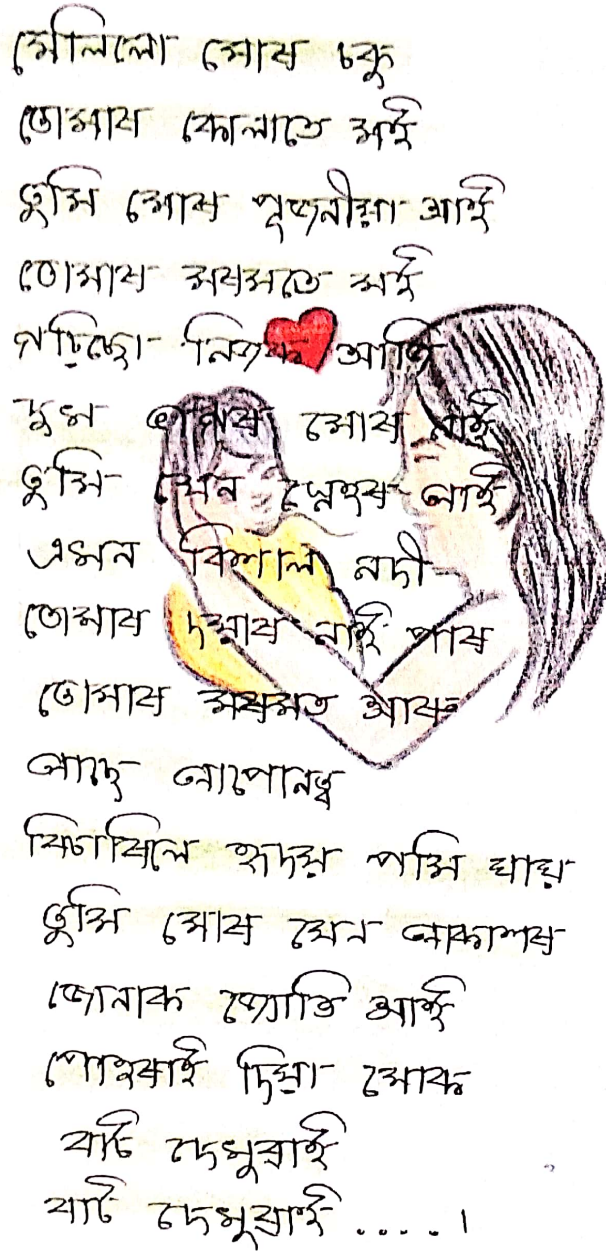 মেলিলো মোৰ চকু
তোমাৰ কোলাতে মই
তুমি মোৰ পূজনীয়া আই
তোমাৰ মৰমতে মই
গঢ়িছো নিজক আজি
দুখ ভাগৰ মোৰ নাই
তুমি যেন স্নেহৰ আই
এখন বিশাল নদী
তোমাৰ দয়াৰ নাই পাৰ
তোমাৰ মৰমত আৰু
আছে আপোনত্ব
বিচাৰিলে হৃদয় গমি যায়
তুমি মোৰ যেন আকাশৰ
জোনাক জ্যোতি আই
পোহৰাই দিয়া মোক
বাট দেখুৱাই
বাট দেখুৱাই . . . . ।